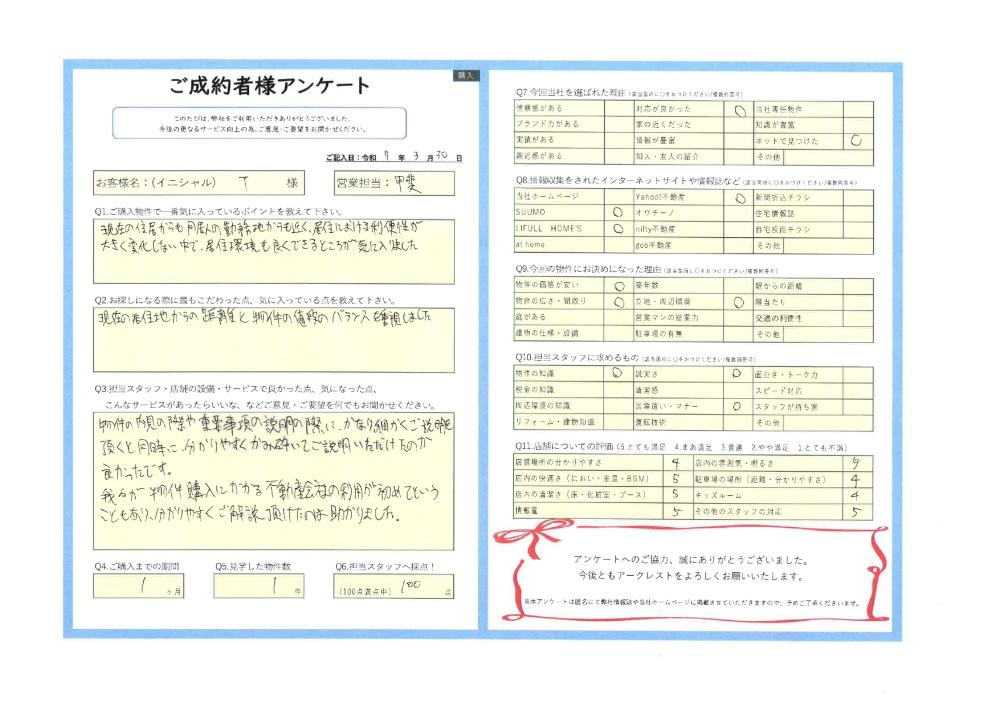 購入
ご成約者様アンケート
このたびは、弊社をご利用いただきありがとうございました。
今後の更なるサービス向上の為、ご意見・ご要望をお聞かせください。
ご記入日：令和 7 年 3 月 30 日
お客様名：(イニシャル) T 様
営業担当：甲斐
Q1.ご購入物件で一番気に入っているポイントを教えて下さい。
現在の住居からも同居人の勤務地からも近く、居住における利便性が
大きく変化しない中で、居住環境も良くできるところが気に入りました
Q2.お探しになる際に最もこだわった点、気に入っている点を教えて下さい。
現在の居住地からの距離と物件の値段のバランスを重視しました
Q3.担当スタッフ・店舗の設備・サービスで良かった点、気になった点、
こんなサービスがあったらいいな、などご意見・ご要望を何でもお聞かせください。
物件の内見の際や重要事項の説明の際に、かなり細かくご説明
頂くと同時に、分かりやすくかみ砕いてご説明いただけたのが
良かったです。
我々が物件購入にかかる不動産会社の利用が初めてという
こともあり、分かりやすくご解説頂けたのは助かりました。
Q4.ご購入までの期間
1 ヶ月
Q5.見学した物件数
1 件
Q6.担当スタッフへ採点！
(100点満点中) 100 点
Q7.今回当社を選ばれた理由 (該当箇所に○をおつけください/複数回答可)
情熱感がある 対応が良かった ○ 当社専任物件
ブランド力がある 家の近くだった 知識が豊富
実績がある 情報が豊富 ネットで見つけた ○
親近感がある 知人・友人の紹介 その他
Q8.情報収集をされたインターネットサイトや情報誌など (該当箇所に○をおつけください/複数回答可)
当社ホームページ Yahoo!不動産 ○ 新聞折込チラシ
SUUMO ○ オウチーノ 住宅情報誌
LIFULL HOME'S ○ nifty不動産 自宅投函チラシ
at home goo不動産 その他
Q9.今回の物件にお決めになった理由 (該当箇所に○をおつけください/複数回答可)
物件の価格が安い ○ 築年数 駅からの距離
物件の広さ・間取り ○ 立地・周辺環境 ○ 陽当たり
庭がある 営業マンの提案力 交通の利便性
建物の仕様・設備 駐車場の有無 その他
Q10.担当スタッフに求めるもの (該当箇所に○をおつけください/複数回答可)
物件の知識 ○ 誠実さ ○ 面白さ・トーク力
税金の知識 清潔感 スピード対応
周辺環境の知識 言葉遣い・マナー ○ スタッフが持ち家
リフォーム・建物知識 運転技術 その他
Q11.店舗についての評価 (5.とても満足 4.まあ満足 3.普通 2.やや満足 1.とても不満)
店舗場所の分かりやすさ 4 店内の雰囲気・明るさ 5
店内の快適さ (におい・室温・BGM) 5 駐車場の場所 (距離・分かりやすさ) 4
店内の清潔さ (床・化粧室・ブース) 5 キッズルーム 4
情報量 5 その他のスタッフの対応 5
アンケートへのご協力、誠にありがとうございました。
今後ともアークレストをよろしくお願いいたします。
※本アンケートは匿名にて弊社情報誌や当社ホームページに掲載させていただきますので、予めご了承くださいませ。